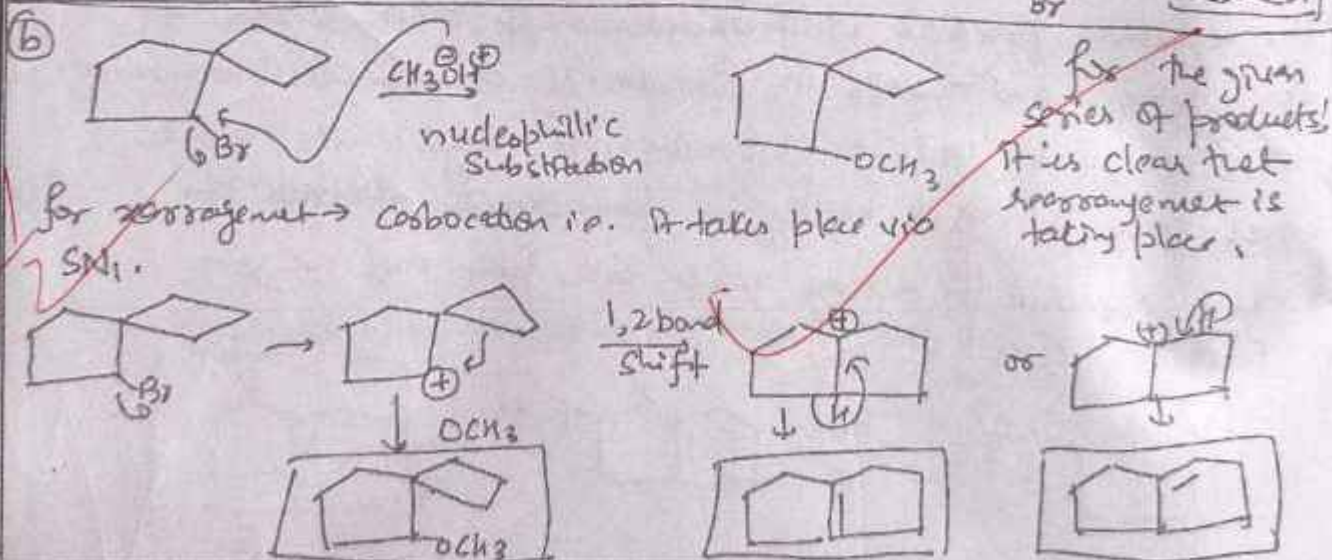 Br
(b)
CH3OH
⊖ ⊕
Br
nucleophillic
Substitution
OCH3
for the given
series of products,
it is clear that
rearrangement is
taking place.
for rearrangement → carbocation i.e. it takes place via
SN1.
Br
→
⊕
1,2 bond
shift
⊕
H
or
(+) H
OCH3
OCH3